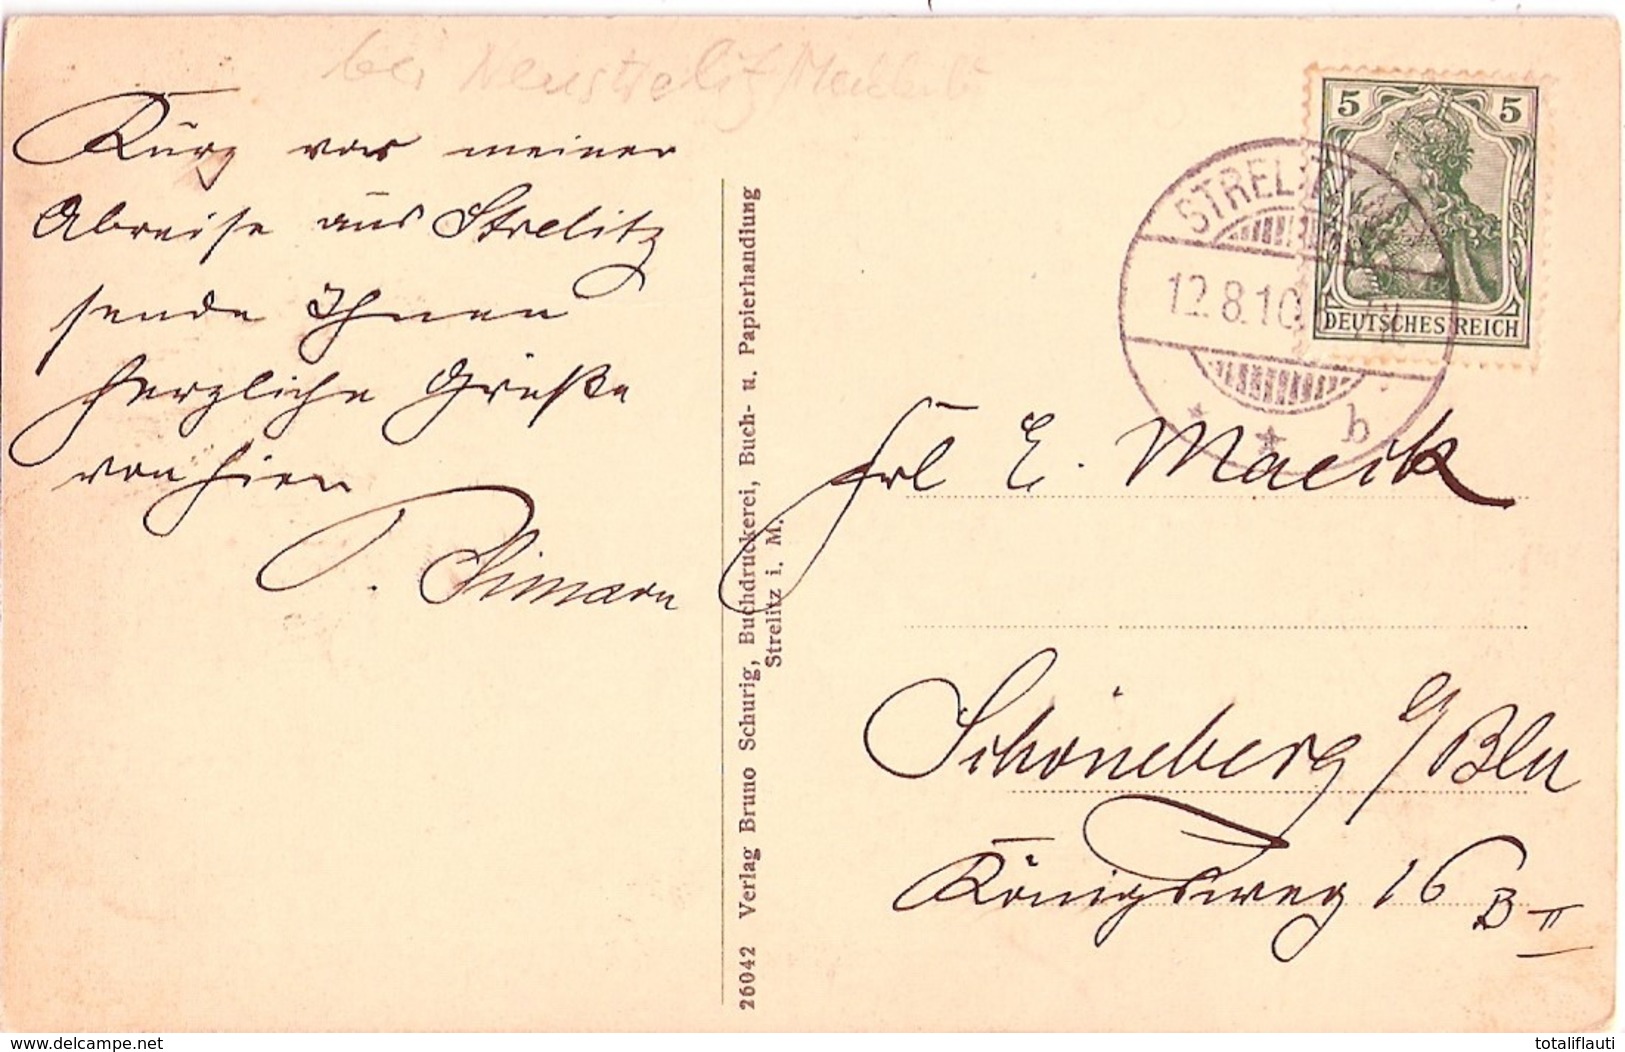 bei Neustrelitz/Mecklenb
Kurz vor meiner
Abreise aus Strelitz
sende Ihnen
herzliche Grüße
von hier
P.
26042 Verlag Bruno Schurig, Buchdruckerei, Buch- u. Papierhandlung
Strelitz i. M.
5 5
DEUTSCHES REICH
STRELITZ
12.8.10.
* * b
Frl E. Macik
Schöneberg b/Bln
Königsweg 16 B II
www.delcampe.net
totaliflauti